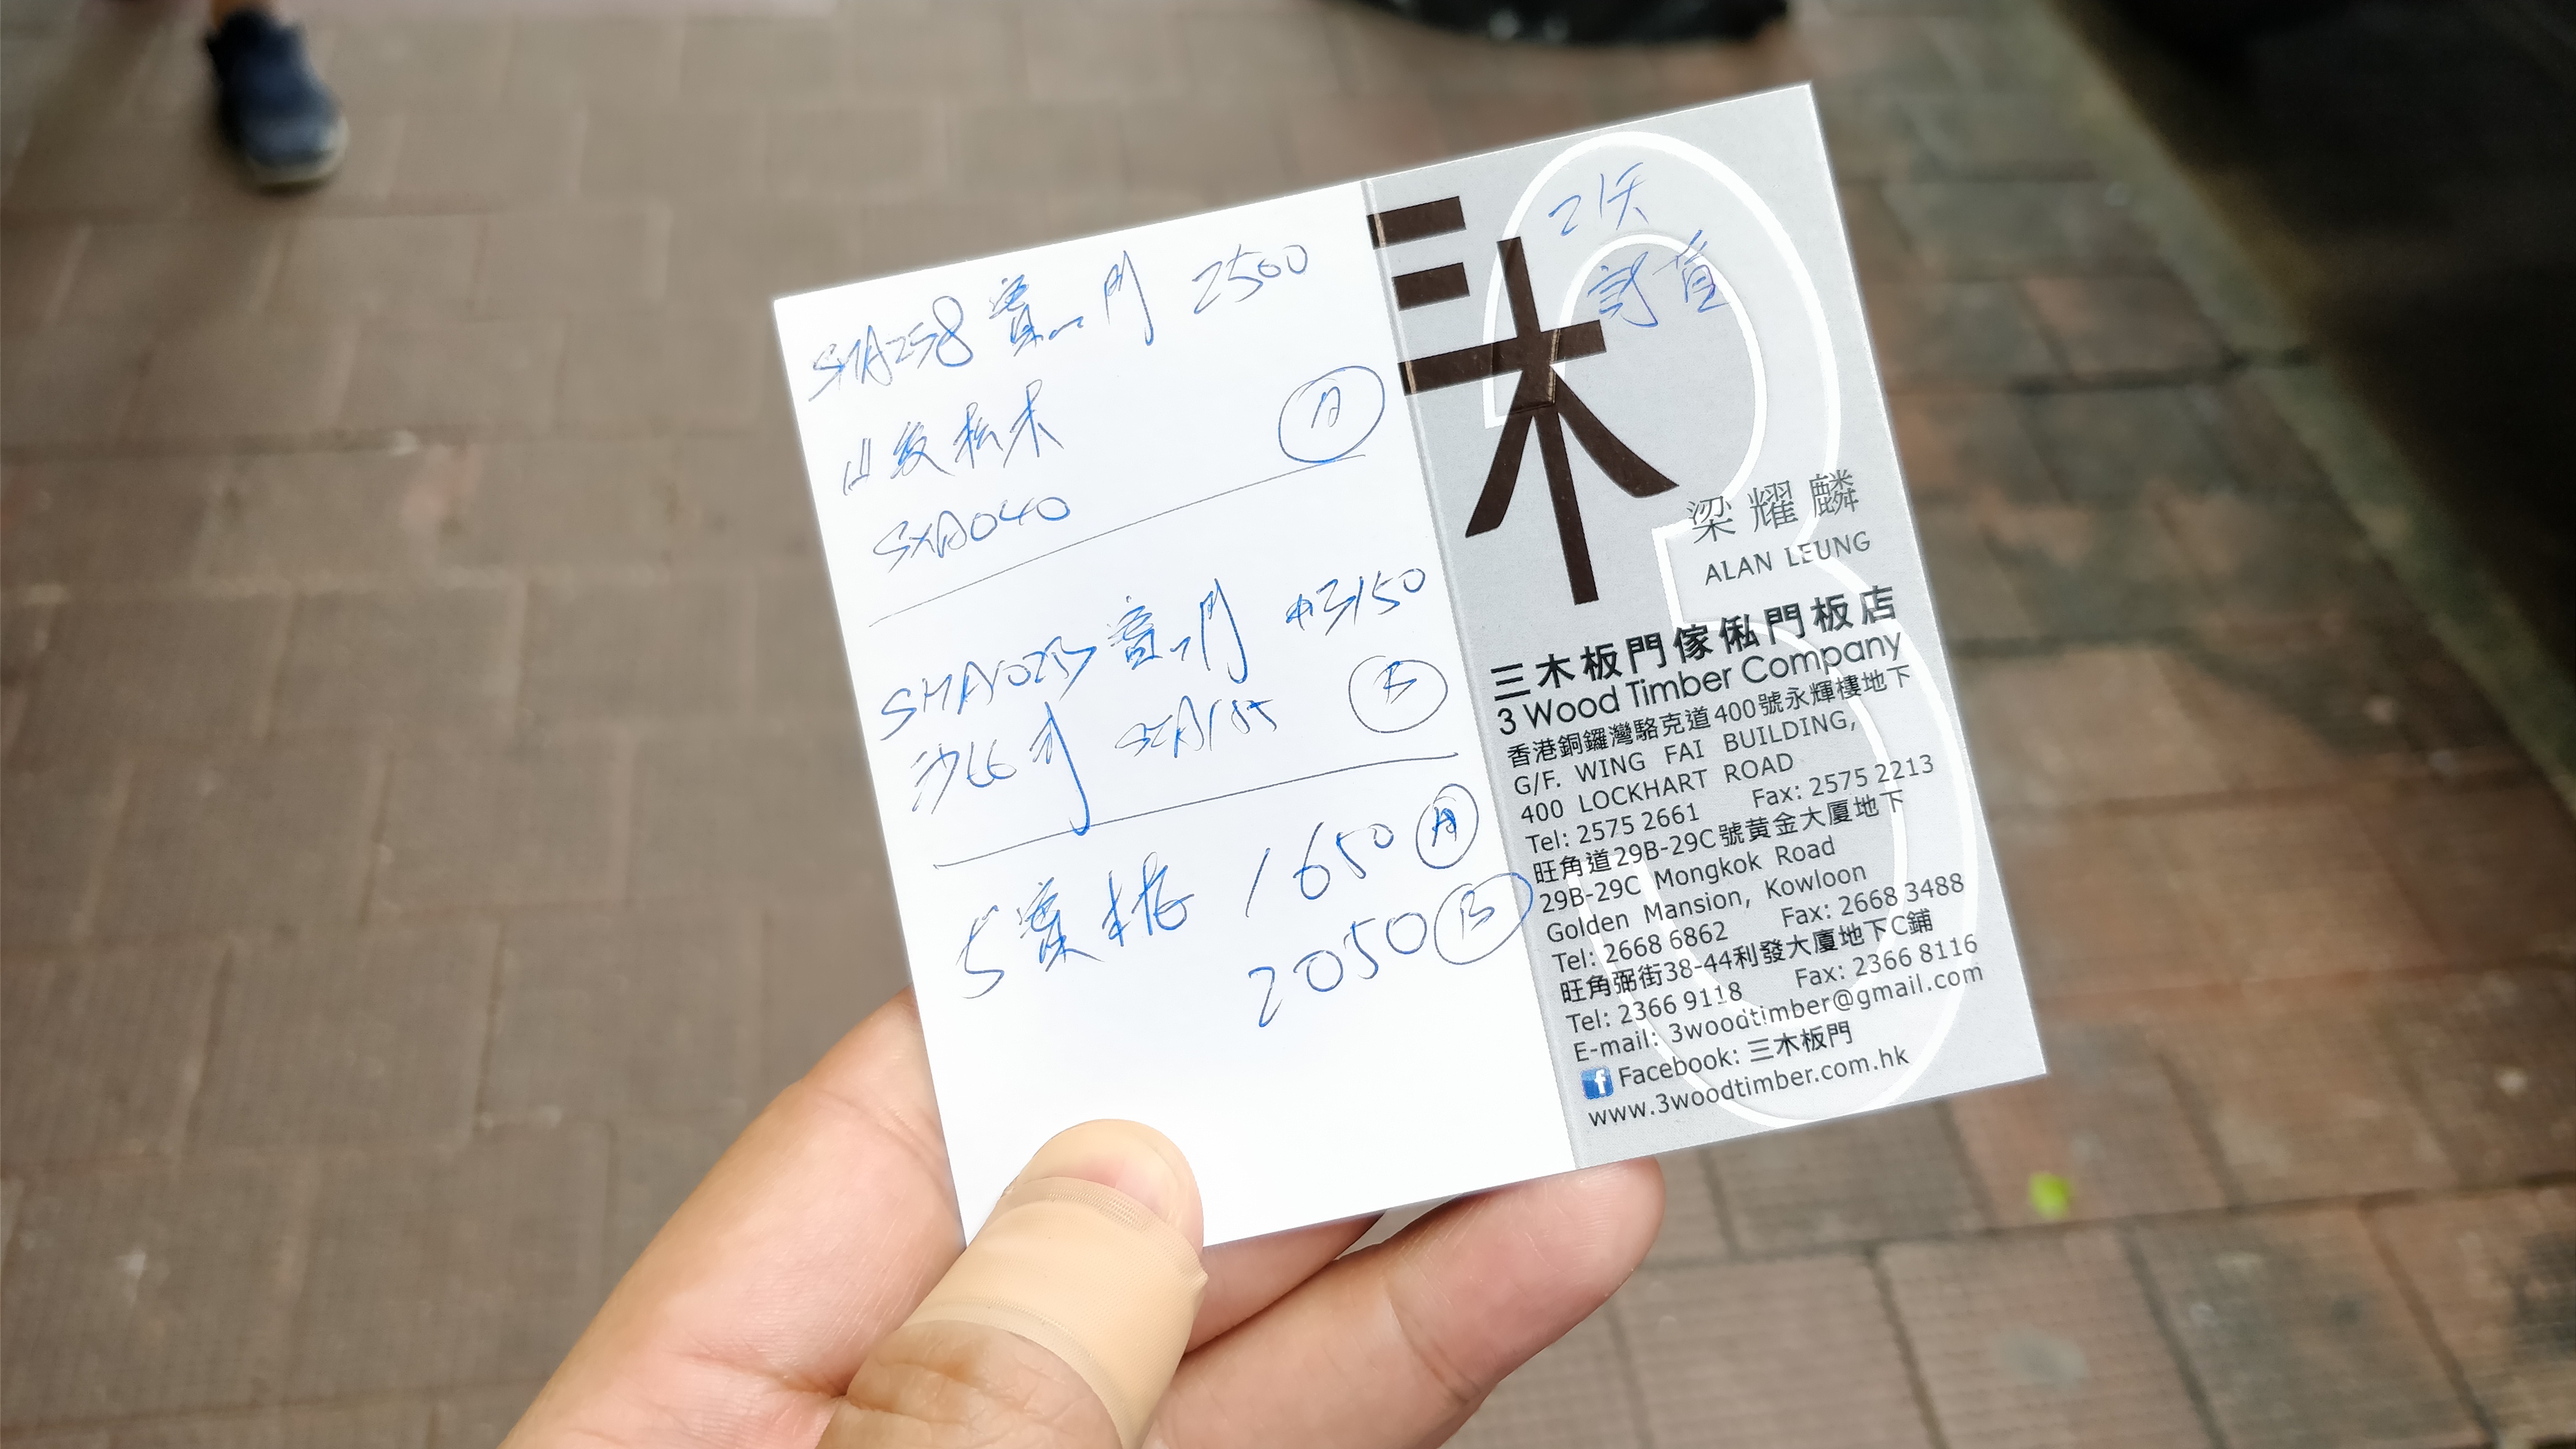 SMA258 實心門 2500
松木 A
SXA040
實心門 #3150
沙比利 B
5 實 1650 A
2050 B
2天
訂貨
三木
梁耀麟
ALAN LEUNG
三木板門傢俬門板店
3 Wood Timber Company
香港銅鑼灣駱克道400號永輝樓地下
G/F. WING FAI BUILDING,
400 LOCKHART ROAD
Tel: 2575 2661 Fax: 2575 2213
旺角道29B-29C號黃金大廈地下
29B-29C Mongkok Road
Golden Mansion, Kowloon
Tel: 2668 6862 Fax: 2668 3488
旺角弼街38-44利發大廈地下C鋪
Tel: 2366 9118 Fax: 2366 8116
E-mail: 3woodtimber@gmail.com
f Facebook: 三木板門
www.3woodtimber.com.hk